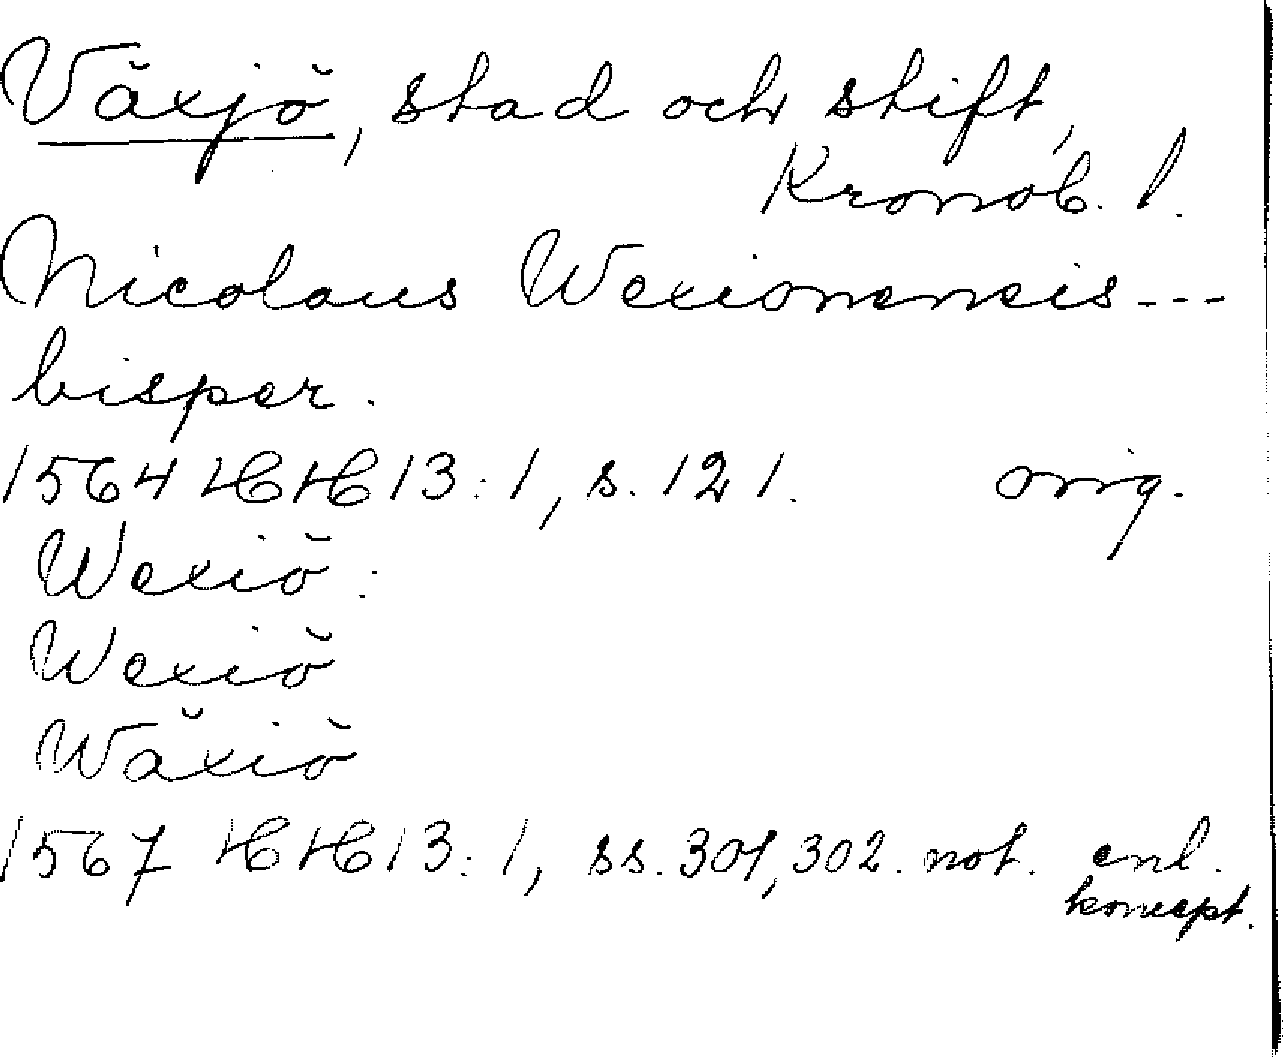 Växjö, stad och stift,
Kronob. l.
Nicolaus Wexionensis---
bisper.
1564 HH 13:1, s. 121. orig.
Wexiö:
Wexiö
Wäxiö
1567 HH 13:1, ss. 301, 302. not. enl.
koncept.